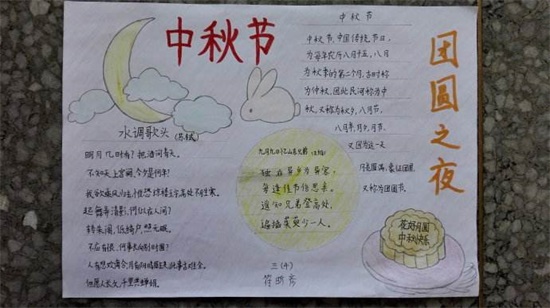 中秋节
中秋节
中秋节,中国传统节日,
为每年农历八月十五,八月
为秋季的第二个月,古时称
为仲秋,因此民间称为中
秋,又称为秋夕,八月节,
八月半,月夕,月节,
又因为这一天
月亮满圆,象征团圆,
又称为团圆节。
团圆之夜
水调歌头
明月几时有?把酒问青天。
不知天上宫阙,今夕是何年!
我欲乘风归去,惟恐琼楼玉宇,高处不胜寒。
起舞弄清影,何似在人间?
转朱阁,低绮户,照无眠。
不应有恨,何事长向别时圆?
人有悲欢离合,月有阴晴圆缺,此事古难全。
但愿人长久,千里共婵娟。
九月九日忆山东兄弟
独在异乡为异客,
每逢佳节倍思亲。
遥知兄弟登高处,
遍插茱萸少一人。
三(4)
符明秀
花好月圆
中秋快乐